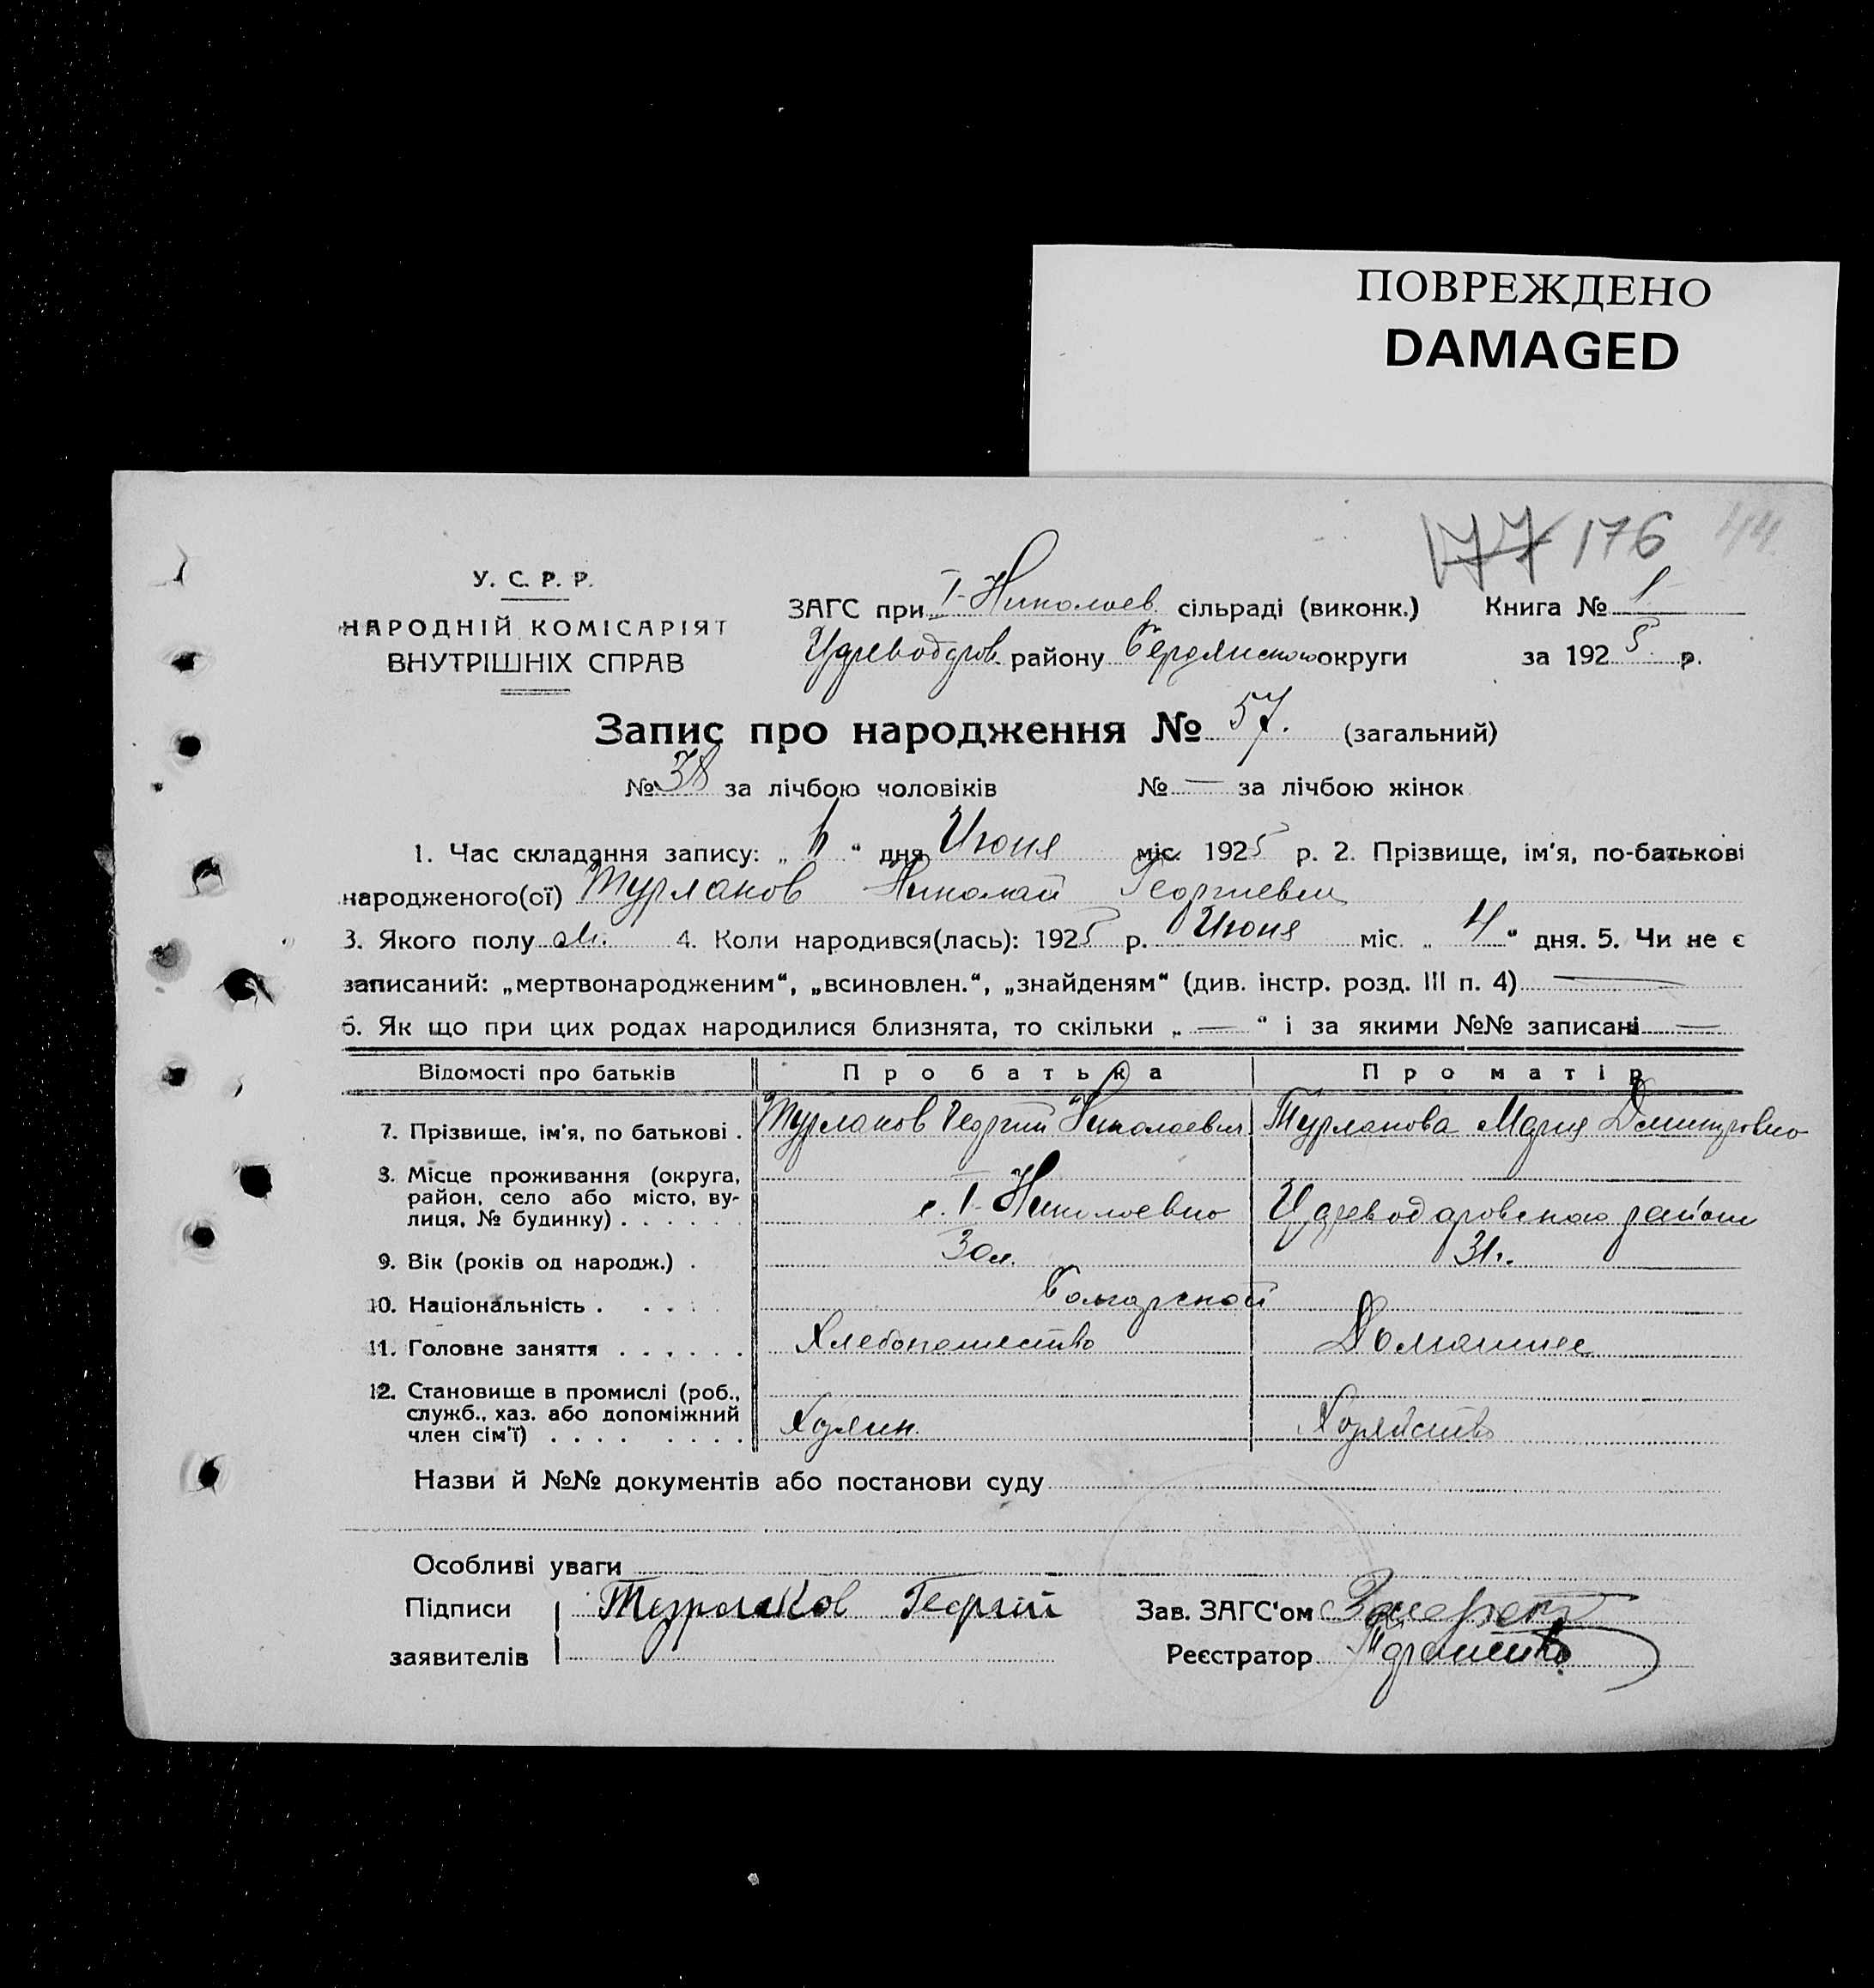 ПОВРЕЖДЕНО
DAMAGED
177 176 44
У. С. Р. Р.
НАРОДНІЙ КОМІСАРІЯТ
ВНУТРІШНІХ СПРАВ
ЗАГС при I-Николаев. сільраді (виконк.) Книга № 1
району Бердянского округи за 1925 р.
Запис про народження № 57. (загальний)
№ 38 за лічбою чоловіків № — за лічбою жінок
1. Час складання запису: „ “ дня Июня міс. 1925 р. 2. Прізвище, ім'я, по-батькові
народженого(ої) Турлаков Николай Георгиевич
3. Якого полу м. 4. Коли народився(лась): 1925 р. Июня міс. „ 4 “ дня. 5. Чи не є
записаний: „мертвонародженим“, „всиновлен.“, „знайденям“ (див. інстр. розд. III п. 4) —
6. Як що при цих родах народилися близнята, то скільки „ — “ і за якими №№ записані —
Відомості про батьків Про батька Про матір
7. Прізвище, ім'я, по батькові . Турлаков Георгий Николаевич Турлакова Мария Дмитровна
8. Місце проживання (округа,
район, село або місто, ву-
лиця, № будинку) . . . . . . с. I-Николаевка района
9. Вік (років од народж.) . 30 л. 31 г.
10. Національність . . . . . Болгарской
11. Головне заняття . . . . . . Хлебопашество Домашнее
12. Становище в промислі (роб.,
служб., хаз. або допоміжний
член сім'ї) . . . . . . . . Хозяин. Хозяйство
Назви й №№ документів або постанови суду
Особливі уваги
Підписи Турлаков Георгий Зав. ЗАГС'ом
заявителів Реєстратор